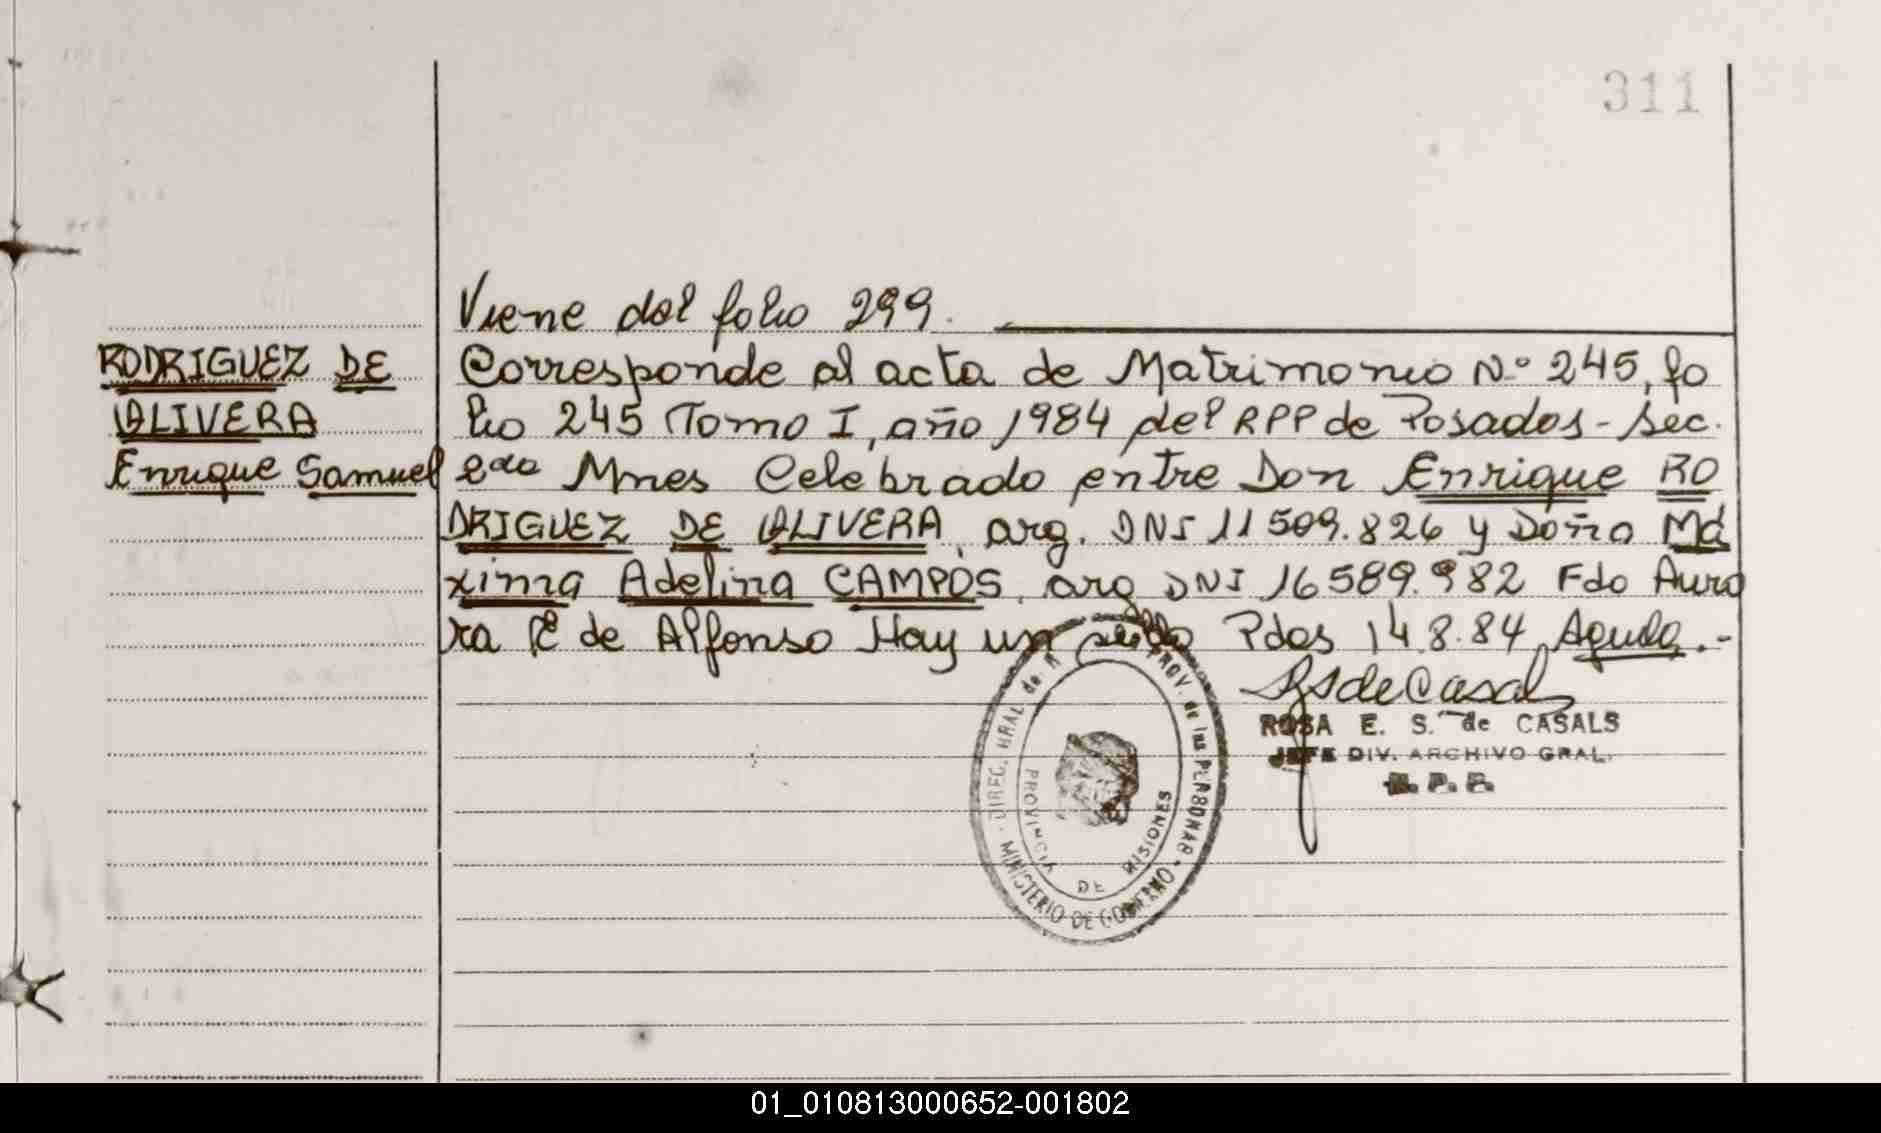 311
Viene del folio 299.
RODRIGUEZ DE
OLIVERA
Enrique Samuel
Corresponde al acta de Matrimonio Nº 245, fo
lio 245 Tomo I, año 1984 del RPP de Posadas - Sec.
2da Mnes Celebrado entre Don Enrique RO
DRIGUEZ DE OLIVERA, arg. DNI 11 509.826 y Doña Má
xima Adelina CAMPOS, arg DNI 16 589.982 Fdo Auro
ra de Alfonso Hay un sello Pdas 14.8.84 Aguda.-
RSdeCasals
ROSA E. S. de CASALS
JEFE DIV. ARCHIVO GRAL.
R. P. P.
DIREC. GRAL. de R. PROV. de las PERSONAS
MINISTERIO DE GOBIERNO
PROVINCIA DE MISIONES
01_010813000652-001802